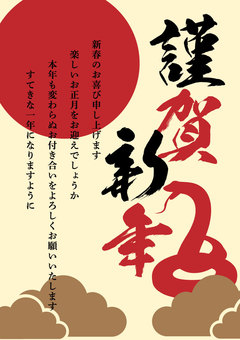 謹賀新年
新春のお喜び申し上げます
楽しいお正月をお迎えでしょうか
本年も変わらぬお付き合いをよろしくお願いいたします
すてきな一年になりますように